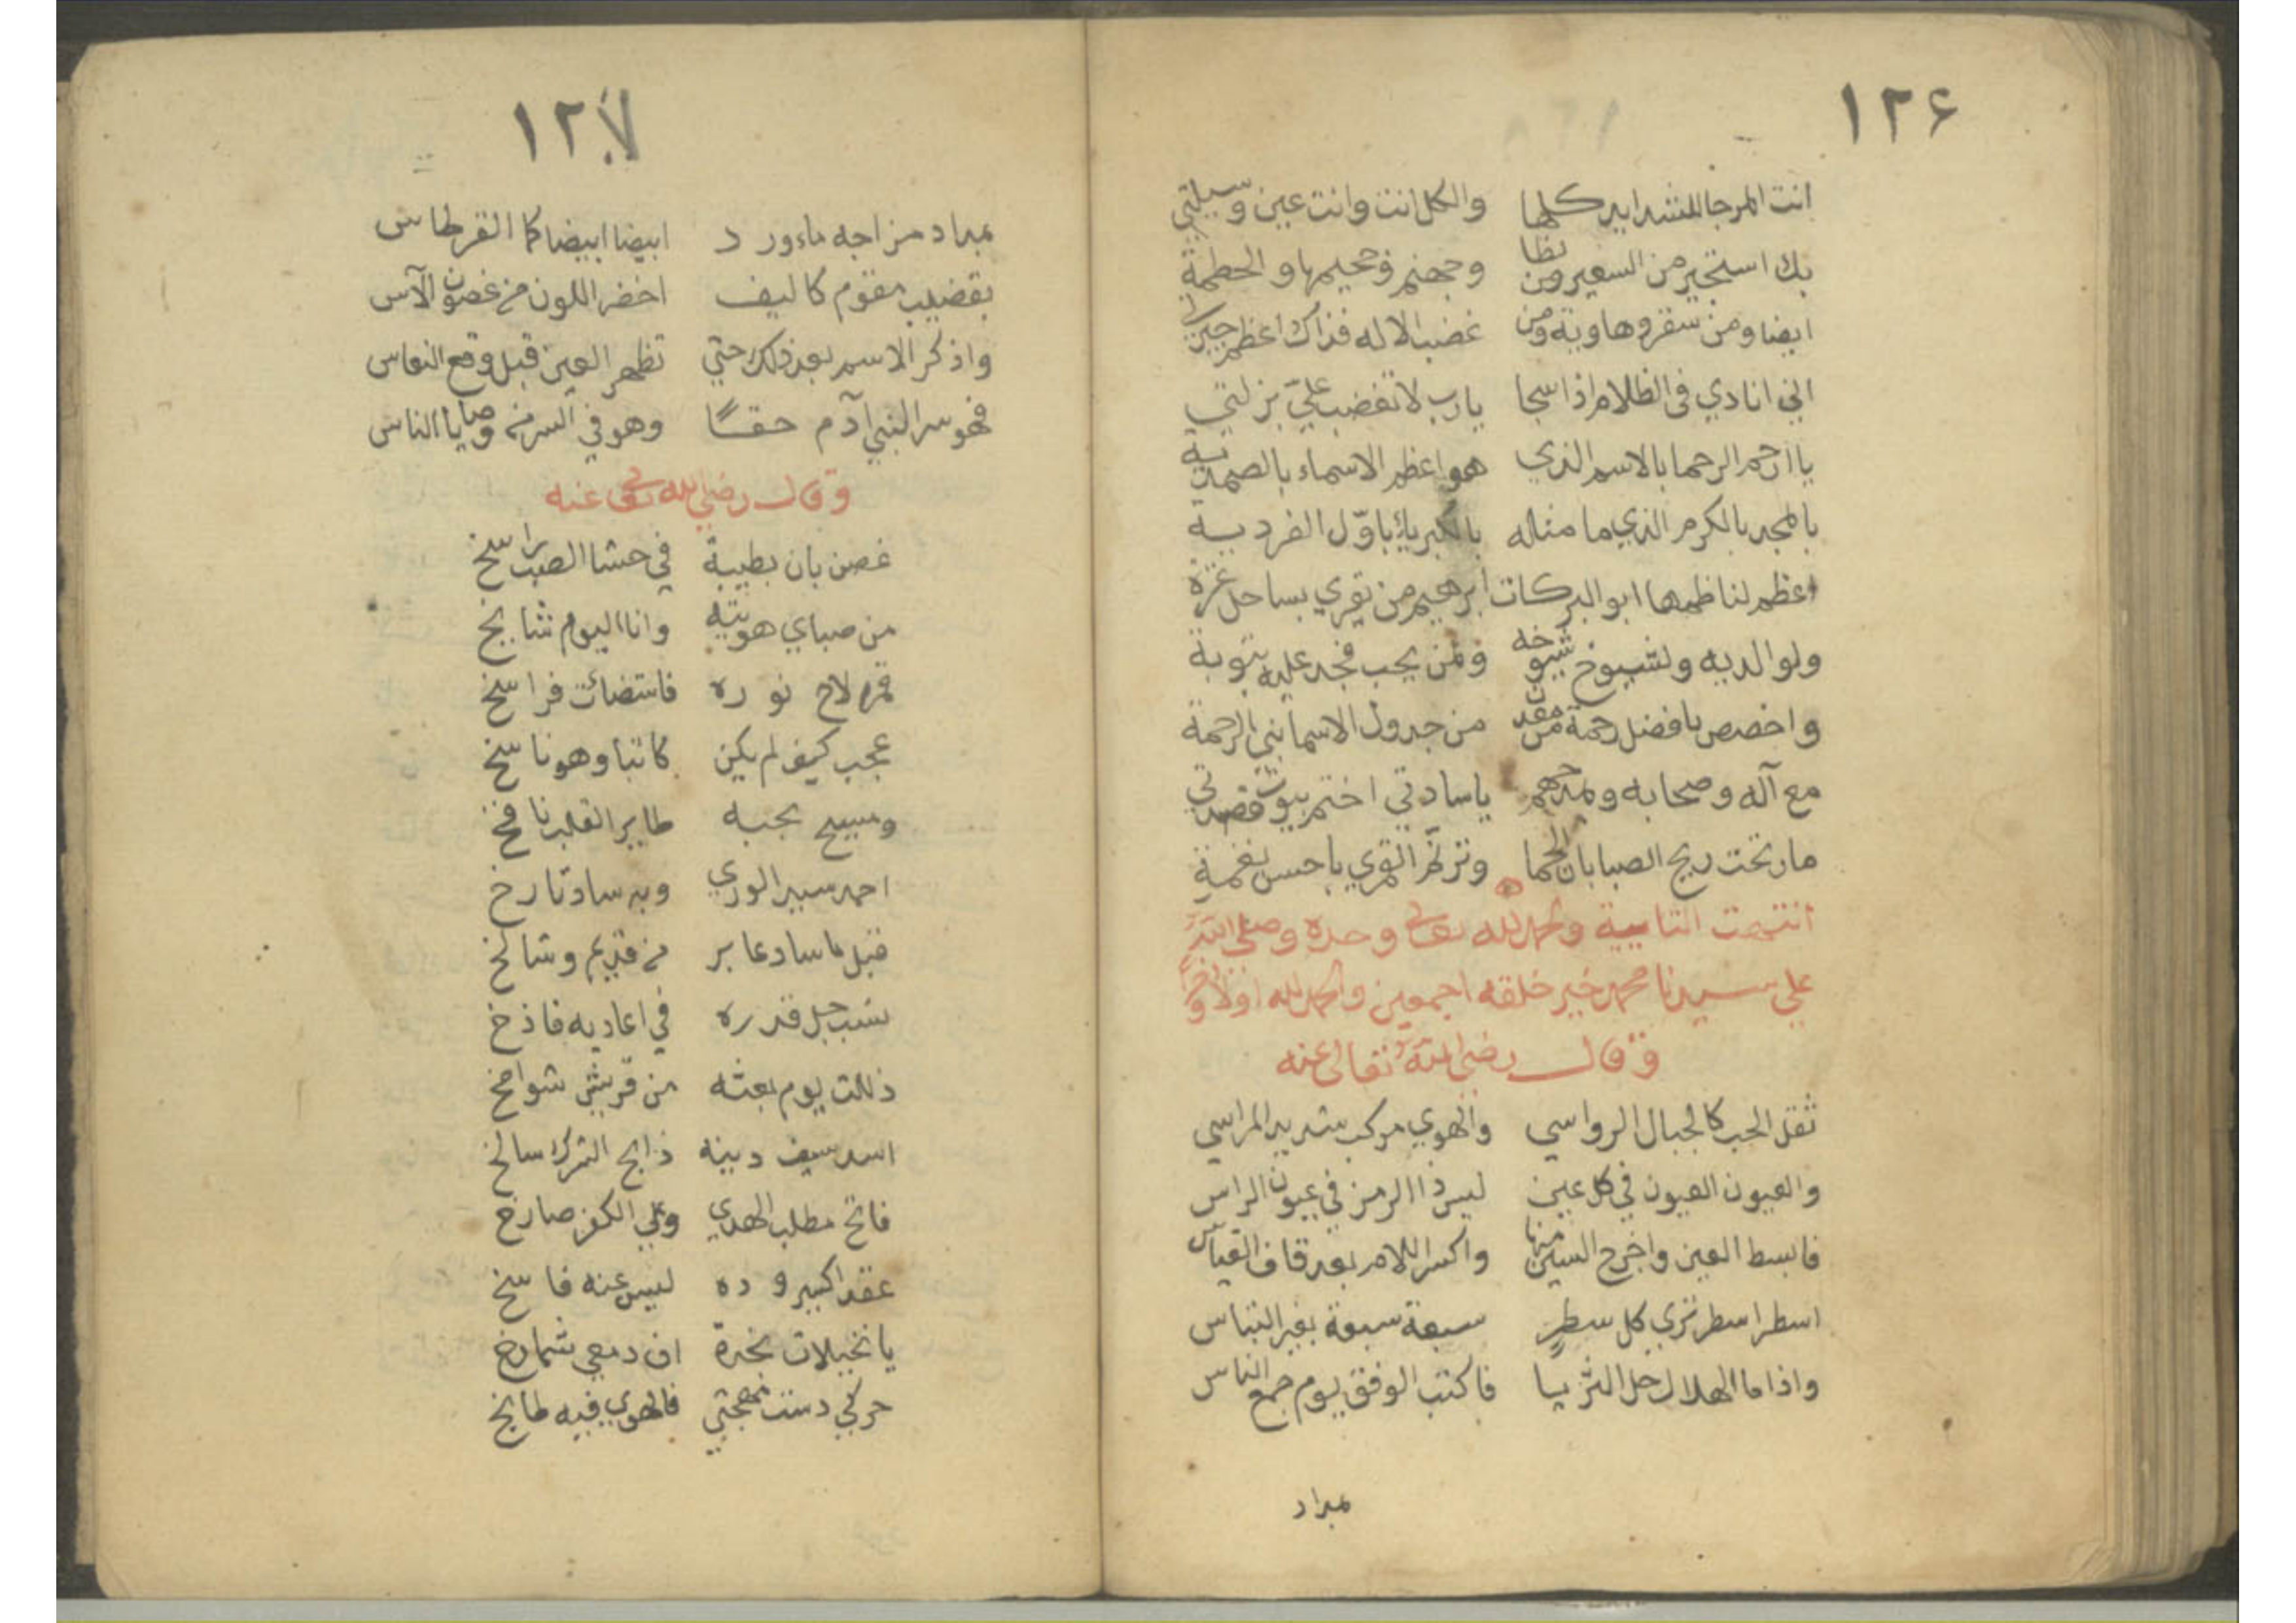 ١٢٦
انت المرجا للشدايد كلها والكل انت وانت عين وسيلتي
بك استجير من السعير ومن لظا وجهنم وجحيمها والحطمة
ايضا ومن سقر وهاوية ومن غضب الاله فذاك اعظم حيرتي
اني انادي في الظلام اذا سجا يارب لا تغضب علي بزلتي
يا ارحم الرحما بالاسم الذي هو اعظم الاسماء بالصمدية
بالمجد بالكرم الذي ما مثاله بالكبرياء باول الفردية
لناظمها ابو البركات ابرهيم من بساحل غزة
ولوالديه ولشيوخ شيوخه ولمن يحب فجد عليه بتوبة
واخصص بافضل رحمة من من جدول الاسما بني الرحمة
مع آله وصحابه وبمدحهم يا سادتي اختم بيوت قصيدتي
ما رنحت ريح الصبا بان الحما وترنم القمري باحسن نغمة
انتهت التايية والحمد لله تعالى وحده وصلى الله
على سيدنا محمد خير خلقه اجمعين والحمد لله اولا واخرا
وقال رضي الله تعالى عنه
ثقل الحب كالجبال الرواسي والهوي مركب شديد المراسي
والعيون العيون في كل عين ليس ذا الرمز في عيون الراس
فابسط العين واخرج السين منها واكسر اللام بعد قاف القياس
اسطرا سطر تري كل سطرٍ سبعة سبعة بغير التباس
واذا ما الهلال حل الثريا فاكتب الوفق يوم جمع الناس
بمداد
١٢٧
بمداد مزاجه ماء ورد ابيضا ابيضا كما القرطاس
بقضيب مقوم كاليف اخضر اللون من غصون الآس
واذكر الاسم بعد ذلك حتي تظهر العين قبل وقع النعاس
فهو سر النبي آدم حقا وهو في السر من وصايا الناس
وقال رضي الله تعالى عنه
غصن بان بطيبة في حشا الصب راسخ
من صباي هويته وانا اليوم شايخ
قمر لاح نوره فاستضائت فراسخ
عجب كيف لم يكن كاتبا وهو ناسخ
ومسيح بحبه طاير القلب نافخ
احمد سيد الوري وبه ساد تارخ
قبل ما ساد عابر من قديم وشالخ
نسب جل قدره في اعاديه فاذخ
ذللت يوم بعثه من قريش شوامخ
اسد سيف دينه ذابح الشرك سالخ
فاتح مطلب الهدي وعلي الكفر صارخ
عقد اكسير وده ليس عنه فاسخ
يا نخيلات نخرة ان دمعي شمارخ
حركي دست مهجتي فالهوي فيه طابخ